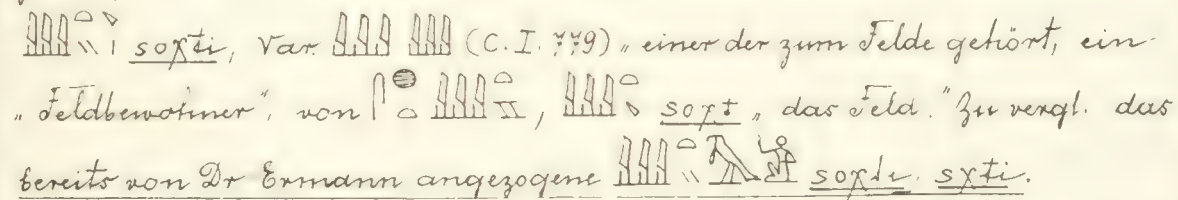 soχti, Var. (C. I. 779) „einer der zum Felde gehört, ein
„Feldbewohner", von , soχt „das Feld." Zu vergl. das
bereits von Dr Ermann angezogene soχti. sχti.